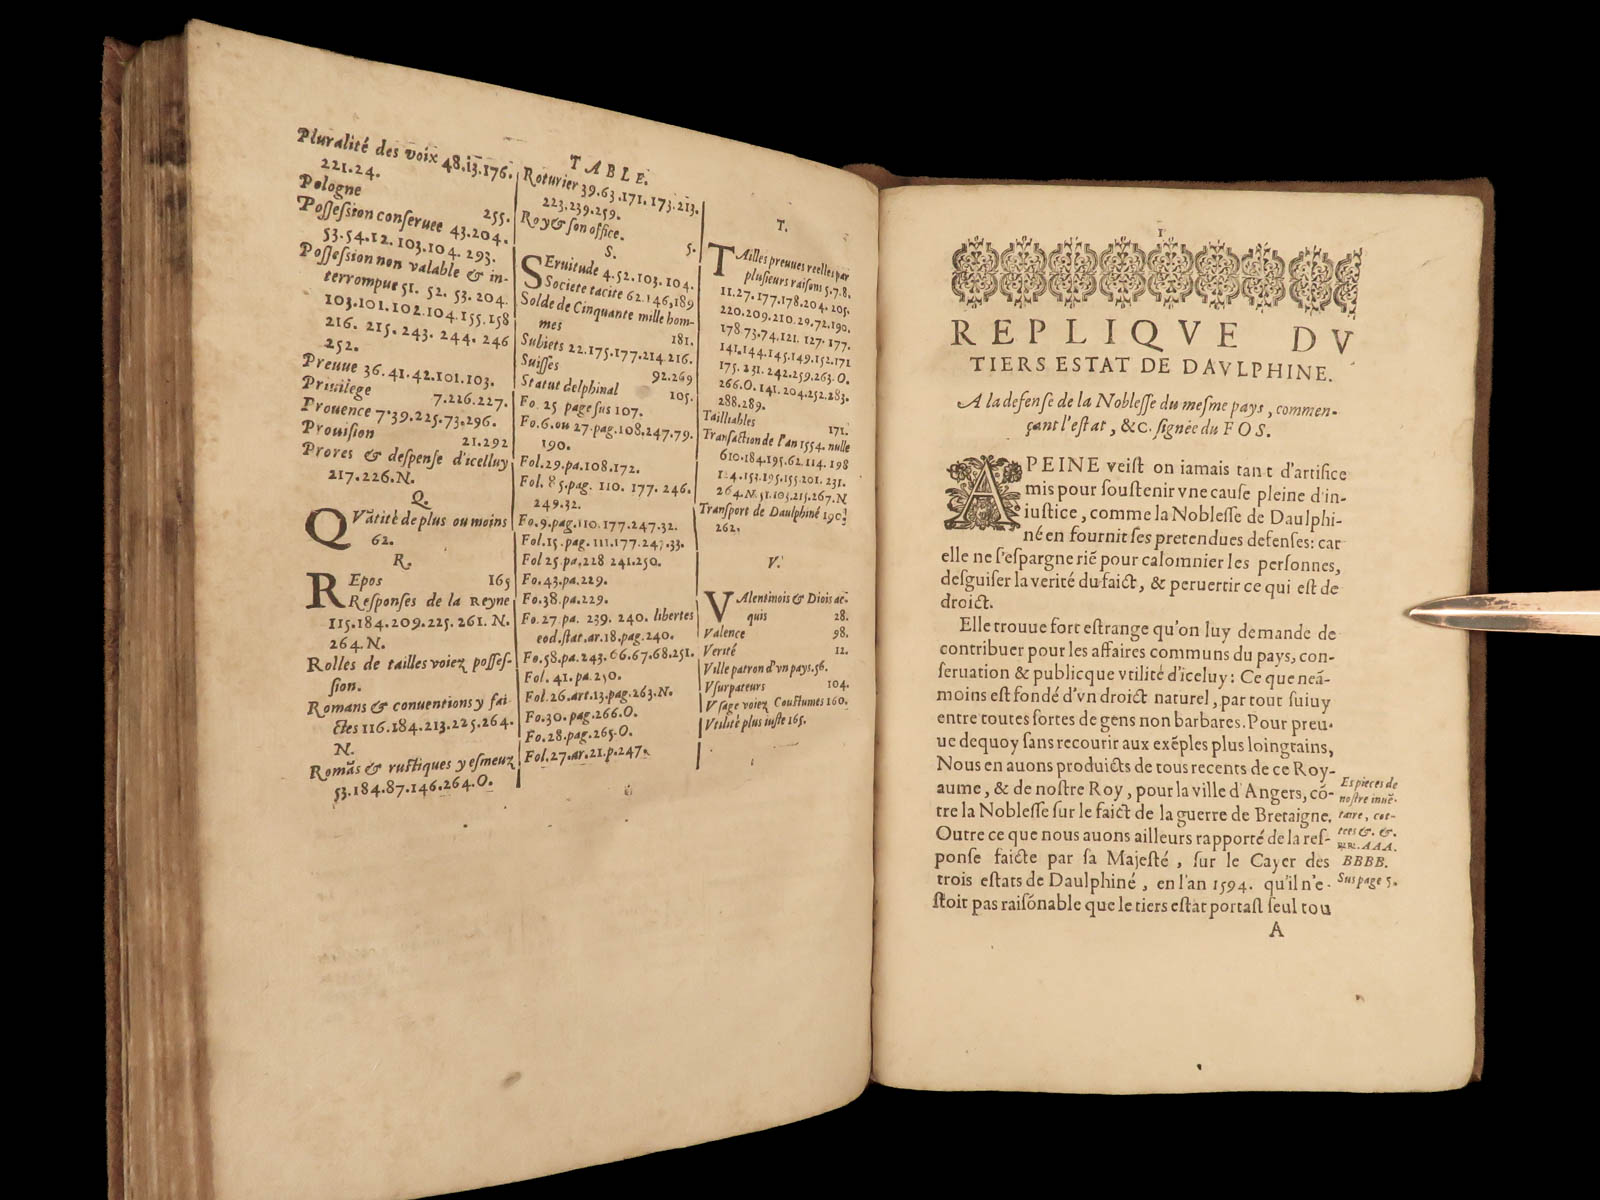 TABLE.
Pluralité des voix 48.13.176.
221.24.
Pologne 255.
Possession conseruee 43.204.
53.54.12.103.104.293.
Possession non valable & in-
terrompue 51. 52. 53. 204.
103.101.102.104.155.158
216. 215. 243. 244. 246
252.
Preuue 36.41.42.101.103.
Priuilege 7.226.227.
Prouence 7.39.225.73.296.
Prouision 21.292
Prores & despense d'icelluy
217.226.N.
Q.
QVatité de plus ou moins
62.
R.
REpos 165
Responses de la Reyne
115.184.209.225.261. N.
264.N.
Rolles de tailles voiez posses-
sion.
Romans & conuentions y fai-
ctes 116.184.213.225.264.
N.
Romãs & rustiques y esmeuz
53.184.87.146.264.O.
Roturier 39.63.171.173.213.
223.239.259.
Roy & son office. 5.
S.
SEruitude 4.52.103.104.
Societe tacite 62.146,189
Solde de Cinquante mille hom-
mes 181.
Subiets 22.175.177.214.216.
Suisses 92.269
Statut delphinal 105.
Fo. 25 page sus 107.
Fo.6.ou 27.pag.108.247.79.
190.
Fol.29.pa.108.172.
Fol. 85.pag. 110. 177. 246.
249.32.
Fo.9.pag.110.177.247.32.
Fol.15.pag.111.177.247.33.
Fol 25.pa.228 241.250.
Fo.43.pa.229.
Fo.38.pa.229.
Fo.27.pa. 239. 240. libertes
eod.stat.ar.18.pag.240.
Fo.58.pa.243.66.67.68.251.
Fol. 41. pa.250.
Fol.26.art.13.pag.263.N.
Fo.30.pag.266.O.
Fo.28.pag.265.O.
Fol.27.ar.21.p.247.
T.
TAilles preuues reelles par
plusieurs raisons 5.7.8.
11.27.177.178.204.205.
220.209.210.29.72.190.
178.73.74.121.127.177.
141.144.145.149.152.171
175.231.242.259.263.O.
266.O.141.204.252.283.
288.289.
Tailliables 171.
Transaction de l'an 1554. nulle
610.184.195.62.114.198
124.153.195.155.201.231.
264.N.51.103.215.267.N
Transport de Daulphiné 190.
262.
V.
VAlentinois & Diois ac-
quis 28.
Valence 98.
Verité 12.
Ville patron d'vn pays.56.
Vsurpateurs 104.
Vsage voiez Coustumes 160.
Vtilité plus iuste 165.
1
REPLIQVE DV
TIERS ESTAT DE DAVLPHINE.
A la defense de la Noblesse du mesme pays, commen-
çant l'estat, &c. signée du FOS.
A PEINE veist on iamais tant d'artifice
mis pour soustenir vne cause pleine d'in-
iustice, comme la Noblesse de Daulphi-
né en fournit ses pretendues defenses: car
elle ne s'espargne riẽ pour calomnier les personnes,
desguiser la verité du faict, & peruertir ce qui est de
droict.
Elle trouue fort estrange qu'on luy demande de
contribuer pour les affaires communs du pays, con-
seruation & publicque vtilité d'iceluy: Ce que neã-
moins est fondé d'vn droict naturel, par tout suiuy
entre toutes sortes de gens non barbares. Pour preu-
ue dequoy sans recourir aux exẽples plus loingtains,
Nous en auons produicts de tous recents de ce Roy-
aume, & de nostre Roy, pour la ville d'Angers, cõ-
tre la Noblesse sur le faict de la guerre de Bretaigne.
Outre ce que nous auons ailleurs rapporté de la res-
ponse faicte par sa Majesté, sur le Cayer des
trois estats de Daulphiné, en l'an 1594. qu'il n'e-
stoit pas raisõnable que le tiers estat portast seul tou
A
Es pieces de
nostre inuẽ-
taire, cot-
tees &. &.
RR.AAA.
BBBB.
Sus page 5.